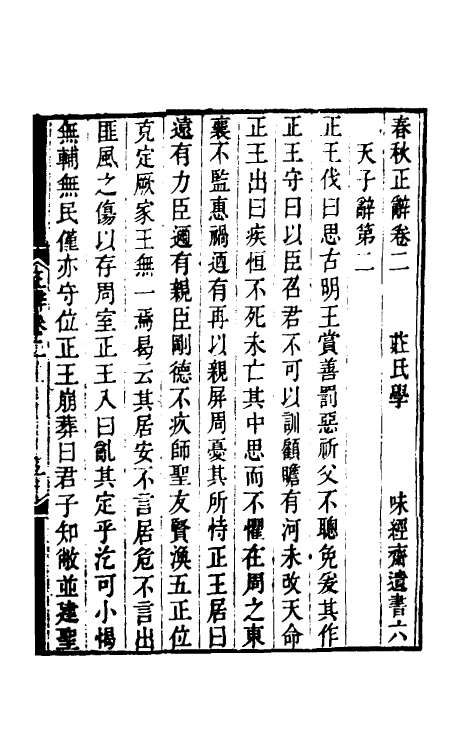 春秋正辭卷二　莊氏學　味經齋遺書六
天子辭第二
正王伐曰思古明王賞善罰惡祈父不聰兔爰其作
正王守曰以臣召君不可以訓顧瞻有河未改天命
正王出曰疾恒不死未亡其中思而不懼在周之東
襄不監惠禍迺有再以親屏周憂其所恃正王居曰
遠有力臣邇有親臣剛德不疚師聖友賢渙五正位
克定厥家王無一焉曷云其居安不言居危不言出
匪風之傷以存周室正王入曰亂其定乎汔可小愒
無輔無民僅亦守位正王崩葬曰君子知敝並建聖